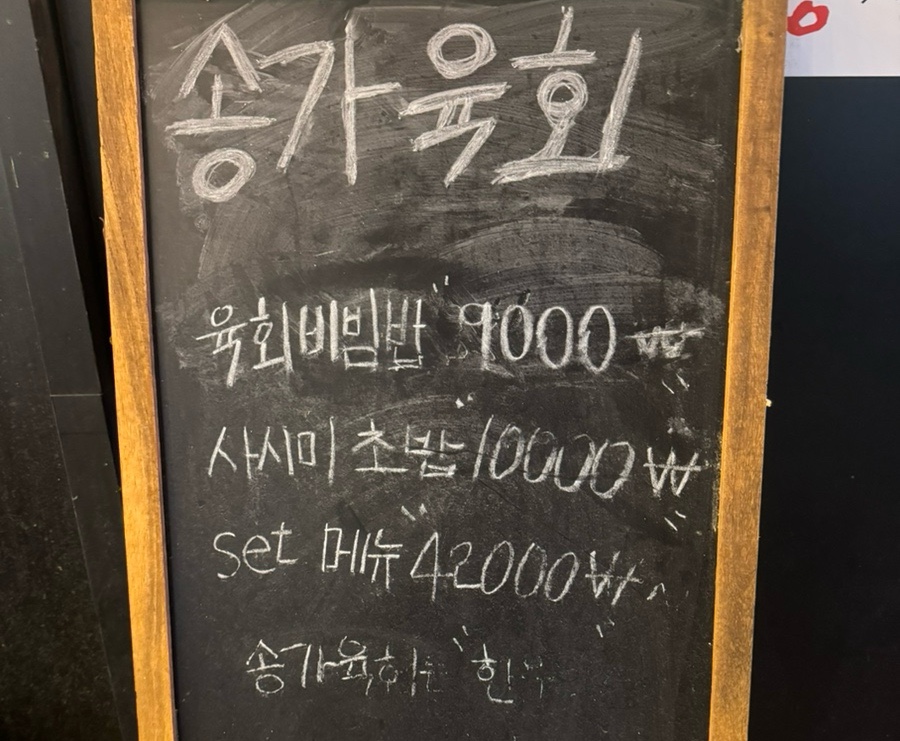 송가육회
육회비빔밥 "9000₩
사시미 초밥 "10000₩"
set 메뉴 "42000₩"
송가육회는 "한